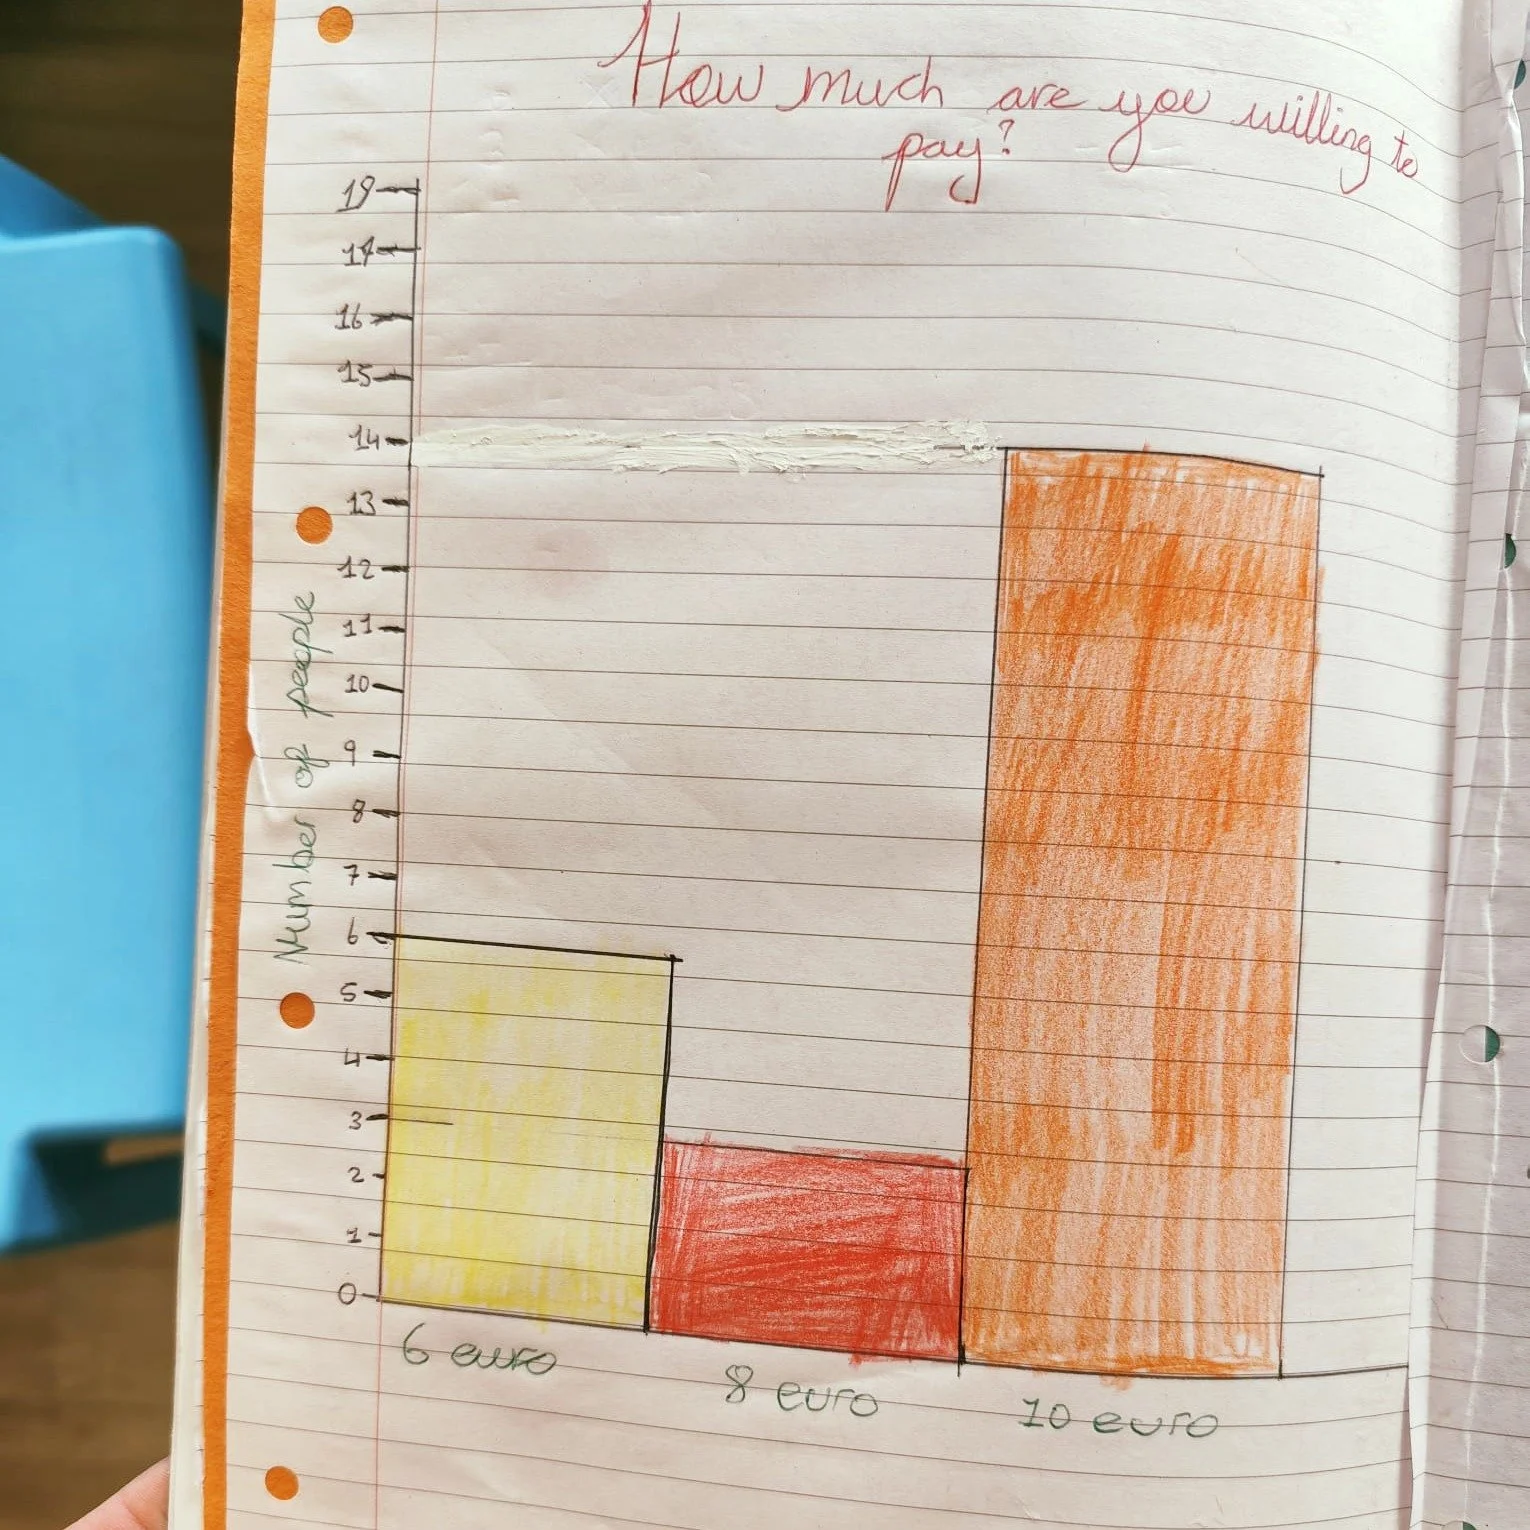 How much are you willing to
pay?
19
17
16
15
14
13
12
11
10
9
8
7
6
5
4
3
2
1
0
Number of people
6 euro
8 euro
10 euro